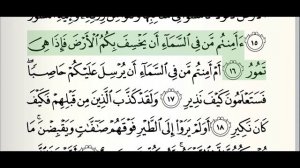 ١٥ ءَأَمِنتُم مَّن فِي ٱلسَّمَآءِ أَن يَخْسِفَ بِكُمُ ٱلْأَرْضَ فَإِذَا هِىَ
تَمُورُ ١٦ أَمْ أَمِنتُم مَّن فِي ٱلسَّمَآءِ أَن يُرْسِلَ عَلَيْكُمْ حَاصِبًا ۖ
فَسَتَعْلَمُونَ كَيْفَ نَذِيرِ ١٧ وَلَقَدْ كَذَّبَ ٱلَّذِينَ مِن قَبْلِهِمْ فَكَيْفَ
كَانَ نَكِيرِ ١٨ أَوَلَمْ يَرَوْا۟ إِلَى ٱلطَّيْرِ فَوْقَهُمْ صَٰٓفَّٰتٍ وَيَقْبِضْنَ ۚ مَا